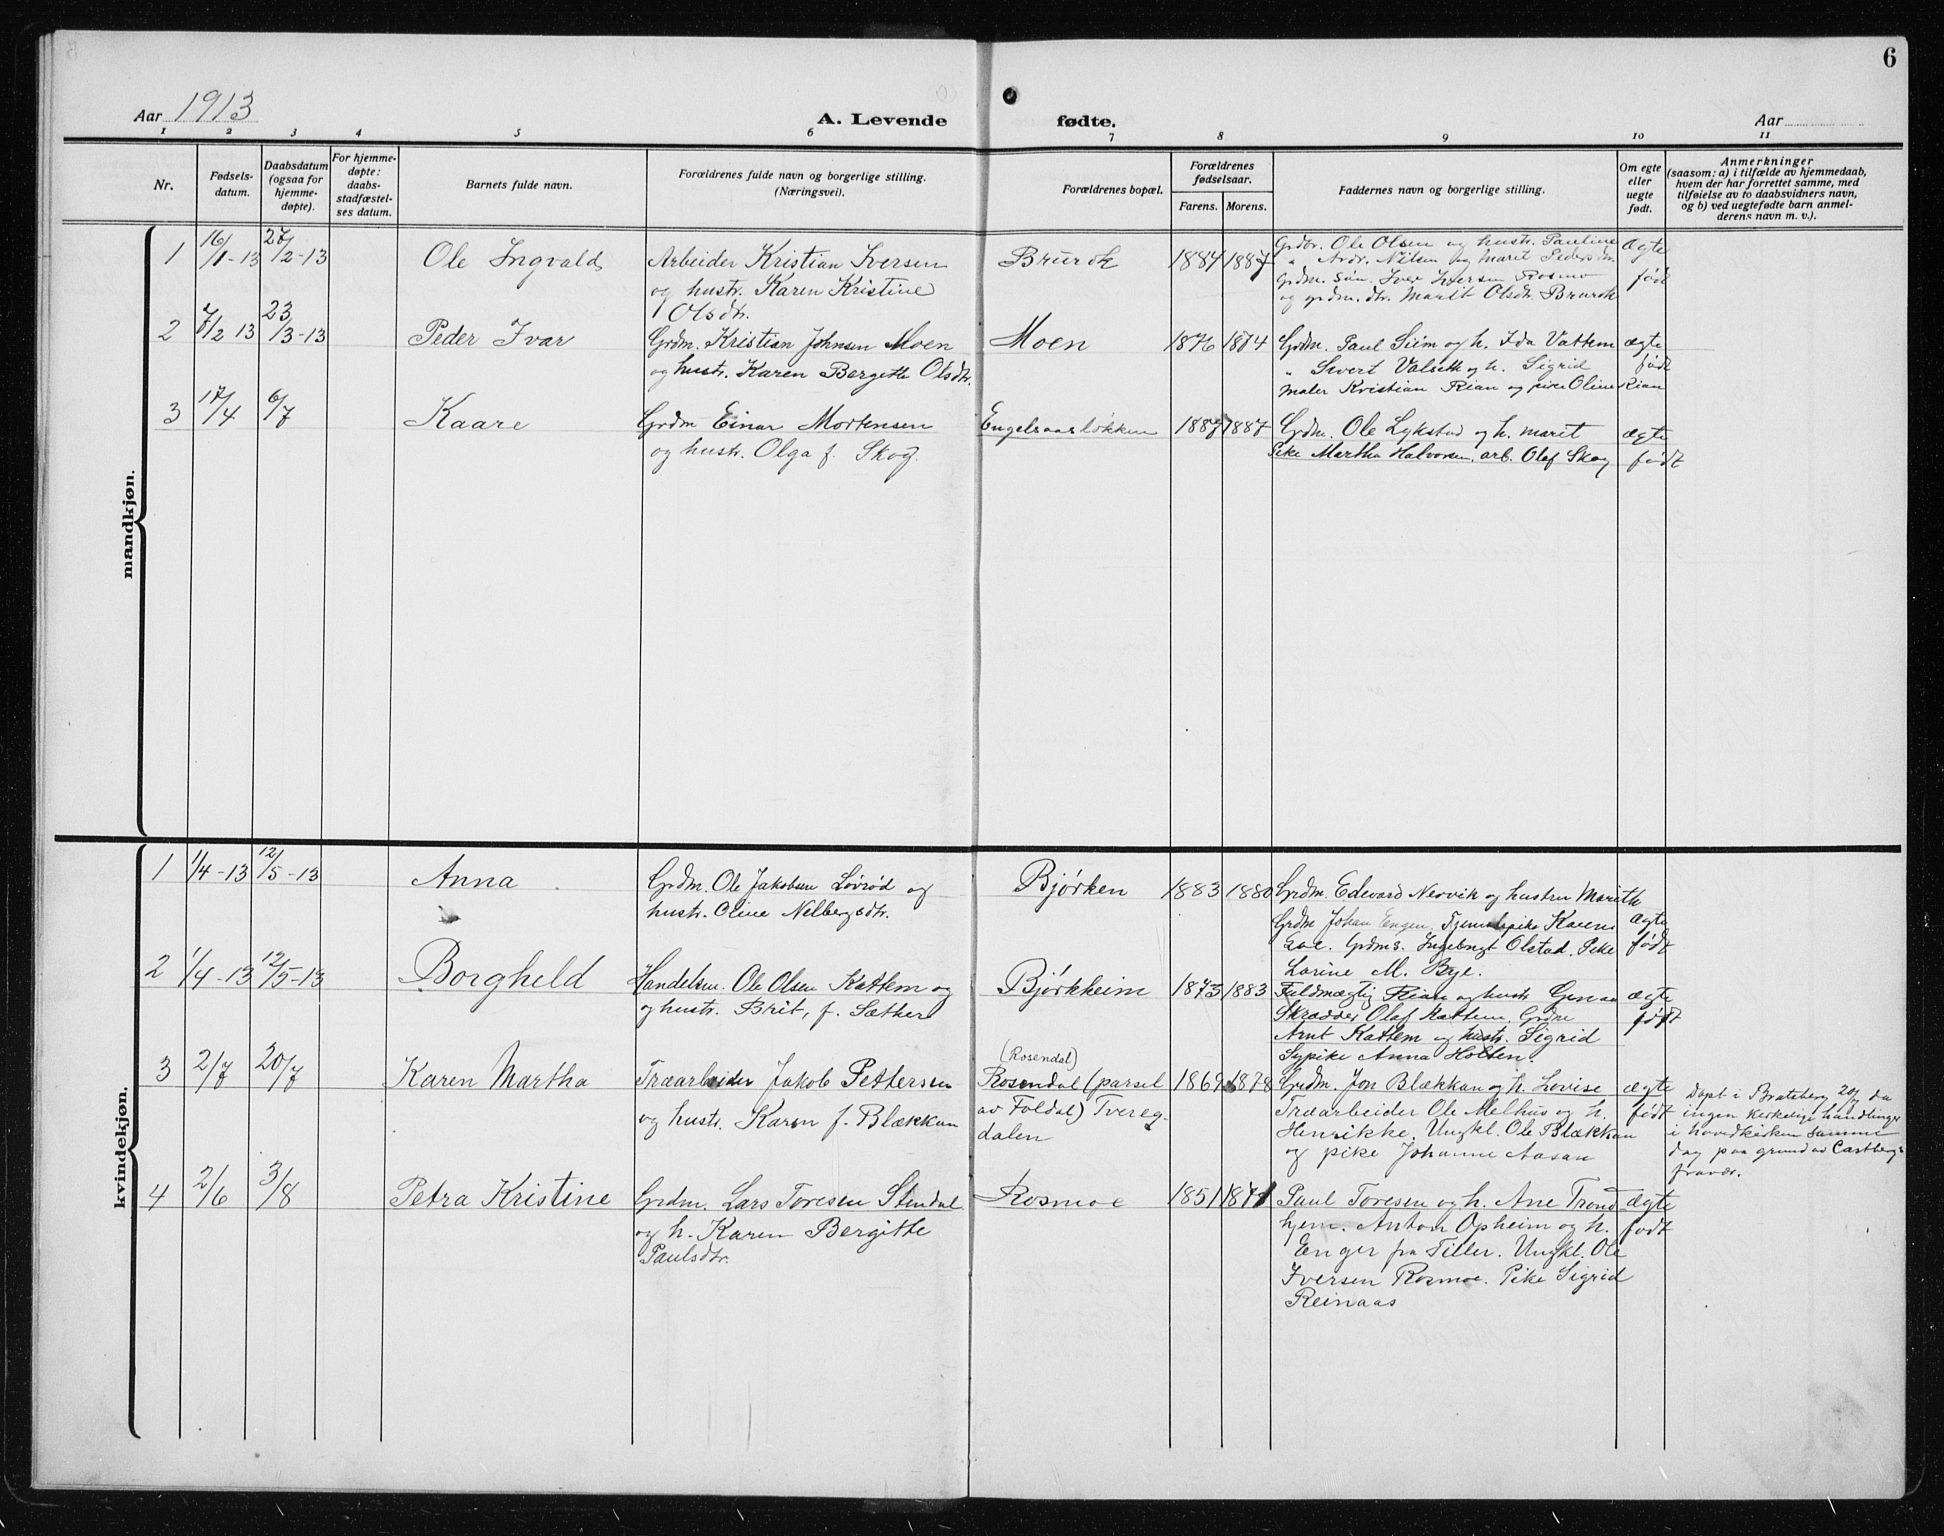 6
Aar 1913
A. Levende fødte.
Aar
1 2 3 4 5 6 7 8 9 10 11
Nr.
Fødsels-
datum.
Daabsdatum
(ogsaa for
hjemme-
døpte).
For hjemme-
døpte:
daabs-
stadfæstel-
ses datum.
Barnets fulde navn.
Forældrenes fulde navn og borgerlige stilling.
(Næringsvei).
Forældrenes bopæl.
Forældrenes
fødselsaar.
Farens. Morens.
Faddernes navn og borgerlige stilling.
Om egte
eller
uegte
født.
Anmerkninger
(saasom: a) i tilfælde av hjemmedaab,
hvem der har forrettet samme, med
tilføielse av to daabsvidners navn,
og b) ved uegtefødte barn anmel-
derens navn m. v.).
mandkjøn.
1 16/1-13 27/2-13 Ole Ingvald
Arbeider Kristian Iversen
og hustr. Karen Kristine
Olsdtr.
Brurok 1884 1887
Grdbr. Ole Olsen og hustr. Pauline
" Andr. Nilsen og Marit
Grdm. søn Iver Iversen Rosmo
og grdm. dtr. Marit Olsdtr. Brurok
Ægte
født
2 7/2 13 23/3-13 Peder Ivar
Grdm. Kristian Johnsen Moen
og hustr. Karen Bergitte Olsdtr.
Moen 1876 1874
Grdm. Paul Siem og h. Ida Vattem
" Sivert Valseth og h. Sigrid
Maler Kristian Rian og pike Oline Rian
ægte
født
3 17/4 6/7 Kaare
Grdm Einar Mortensen
og hustr. Olga f. Skog.
Engelsaasløkken 1887 1887
Grdm. Ole Lykstad og h. Marit
Pike Martha Halvorsen, arb. Olaf Skog
ægte
født
kvindekjøn.
1 1/4-13 12/5-13 Anna
Grdm. Ole Jakobsen Løvrød og
hustr. Oline Nelbergsdtr.
Bjørken 1883 1880
Grdm. Edevard Nervik og hustru Marith
Grdm Johan Engen, Tjenestepike Karen
Grdms. Ingebrigt Olstad. Pike
Larine M. Bye.
ægte
født
2 1/4-13 12/5-13 Borgheld
Handelsm. Ole Olsen Kattem og
og hustr. Brit, f. Sæther
Bjørkheim 1873 1883
Fuldmægtig Rian og hustr.
Skrædder Olaf Kattem. Grdm
Arnt Kattem og hustr. Sigrid
Sypike Anna Holten.
ægte
født
3 2/7 20/7 Karen Martha
Træarbeider Jakob Pettersen
og hustr. Karen f. Blækkan
(Rosendal)
Rosendal (parsel
av Foldal) Tvereg-
dalen
1869 1878
Grdm. Jon Blækkan og h. Lovise
Træarbeider Ole Melhus og h.
Henrikke. Ungkl. Ole Blækkan
og pike Johanne Aasan
ægte
født
Døpt i Bratsberg 20/7 da
ingen kirkelige handlinger
i hovedkirken samme
dag paa grund av Castbergs
fravær.
4 2/6 3/8 Petra Kristine
Grdm. Lars Toresen Stendal
og h. Karen Bergitte
Paulsdtr.
Rosmoe 1851 1871
Paul Toresen og h. Ane Trond
hjem. Anton Opheim og h.
Enger fra Tiller. Ungkl. Ole
Iversen Rosmoe. Pike Sigrid
Reinaas
ægte
født